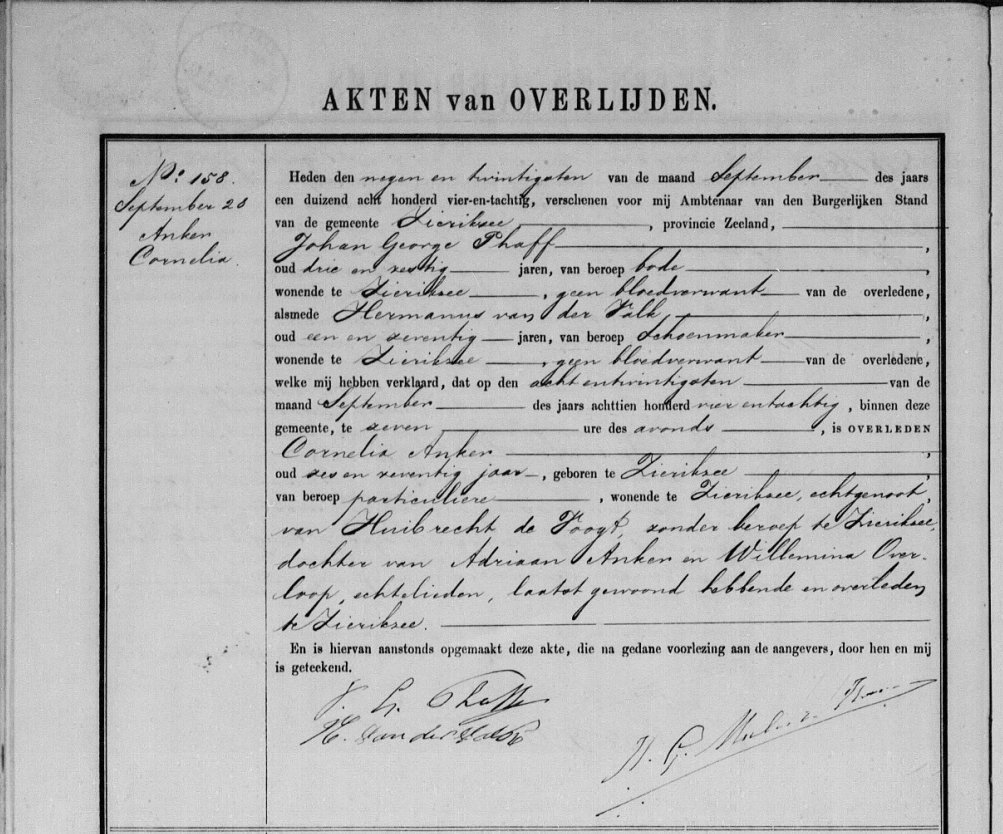 AKTEN van OVERLIJDEN.
No. 158.
September 28
Anker
Cornelia.
Heden den negen en twintigsten van de maand September des jaars
een duizend acht honderd vier-en-tachtig, verschenen voor mij Ambtenaar van den Burgerlijken Stand
van de gemeente Zieriksee, provincie Zeeland,
Johan George Phaff,
oud drie en zestig jaren, van beroep bode,
wonende te Zieriksee, geen bloedverwant van de overledene,
alsmede Hermanus van der Valk,
oud een en zeventig jaren, van beroep Schoenmaker,
wonende te Zieriksee, geen bloedverwant van de overledene,
welke mij hebben verklaard, dat op den acht entwintigsten van de
maand September des jaars achttien honderd vier entachtig, binnen deze
gemeente, te zeven ure des avonds, is OVERLEDEN
Cornelia Anker,
oud zes en zeventig jaar, geboren te Zieriksee,
van beroep particuliere, wonende te Zieriksee, echtgenoot,
van Huibrecht de Voogt, zonder beroep te Zieriksee,
dochter van Adriaan Anker en Willemina Over-
loop, echtelieden, laatst gewoond hebbende en overleden
te Zieriksee.
En is hiervan aanstonds opgemaakt deze akte, die na gedane voorlezing aan de aangevers, door hen en mij
is geteekend.
J. G. Phaff
H. van der Valk